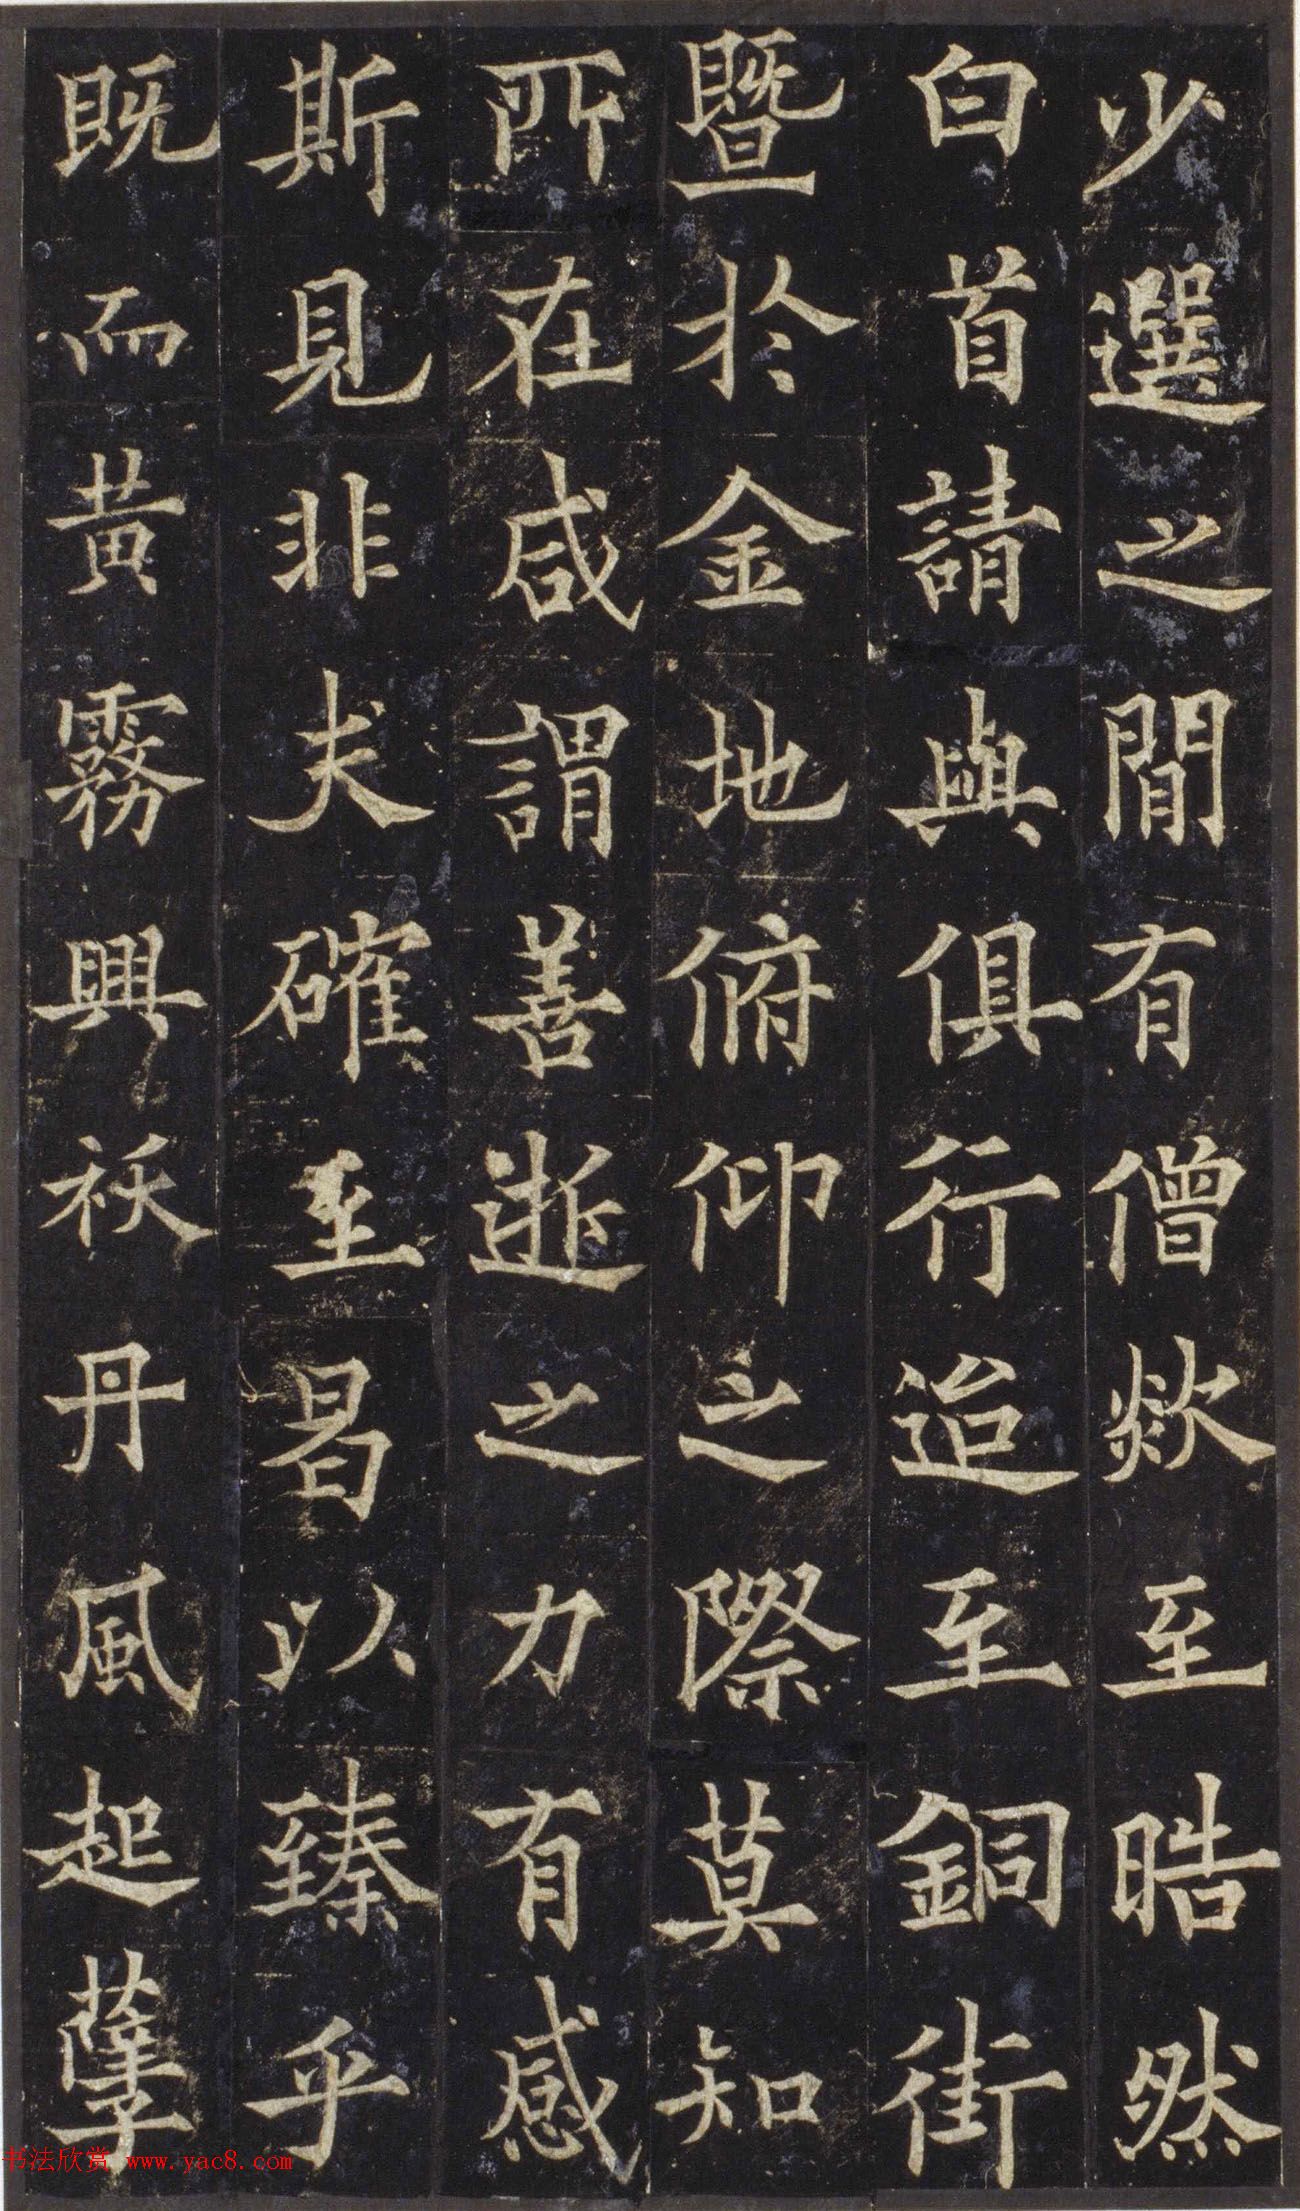 少選之間有僧欻至晧然
白首請與俱行迨至銅街
暨於金地俯仰之際莫知
所在咸謂善逝之力有感
斯見非夫確至曷以臻乎
既而黃霧興祅丹風起孽
书法欣赏 www.yac8.com